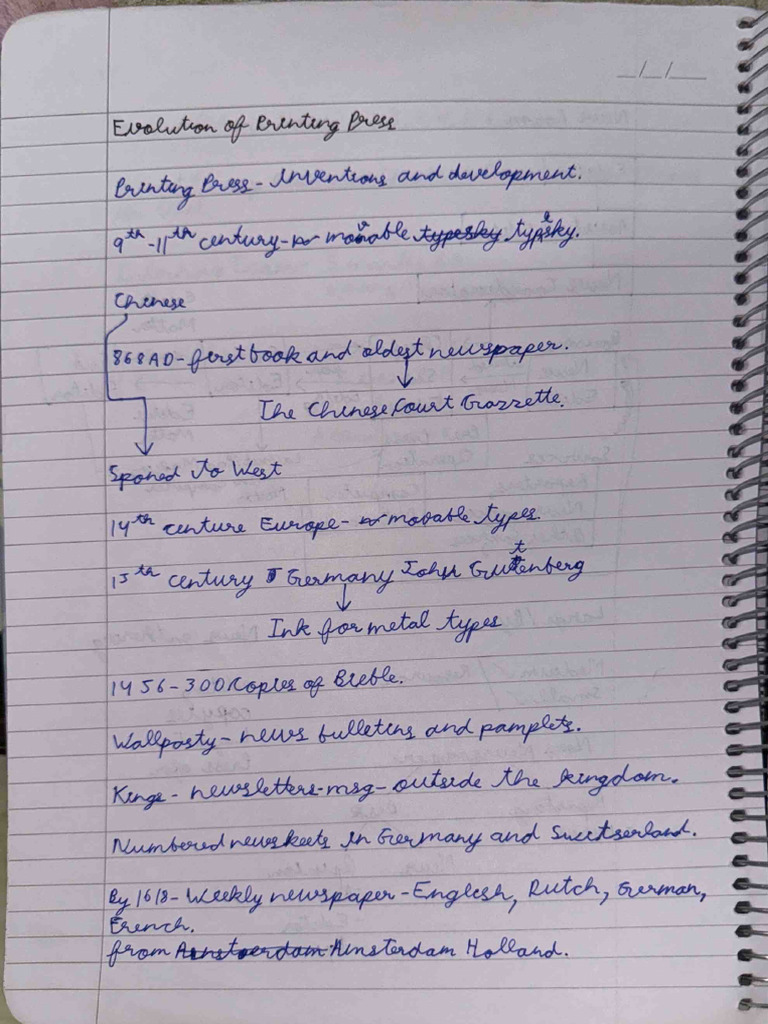 Evolution of Printing Press
Printing Press - Inventions and development.
9th - 11th century - movable typesky.
Chinese
868AD - first book and oldest newspaper.
The Chinese Court Gazzette.
Spaned To West
14th centure Europe - movable types.
15th century Germany John Gutenberg
Ink for metal types
1456 - 300 Copies of Bible.
Wallposty - news bulletins and pamplets.
Kings - newsletters - msg - outside the kingdom.
Numbered newskeets in Germany and Switserland.
By 1618 - Weekly newspaper - English, Dutch, German,
French.
from Amsterdam Holland.